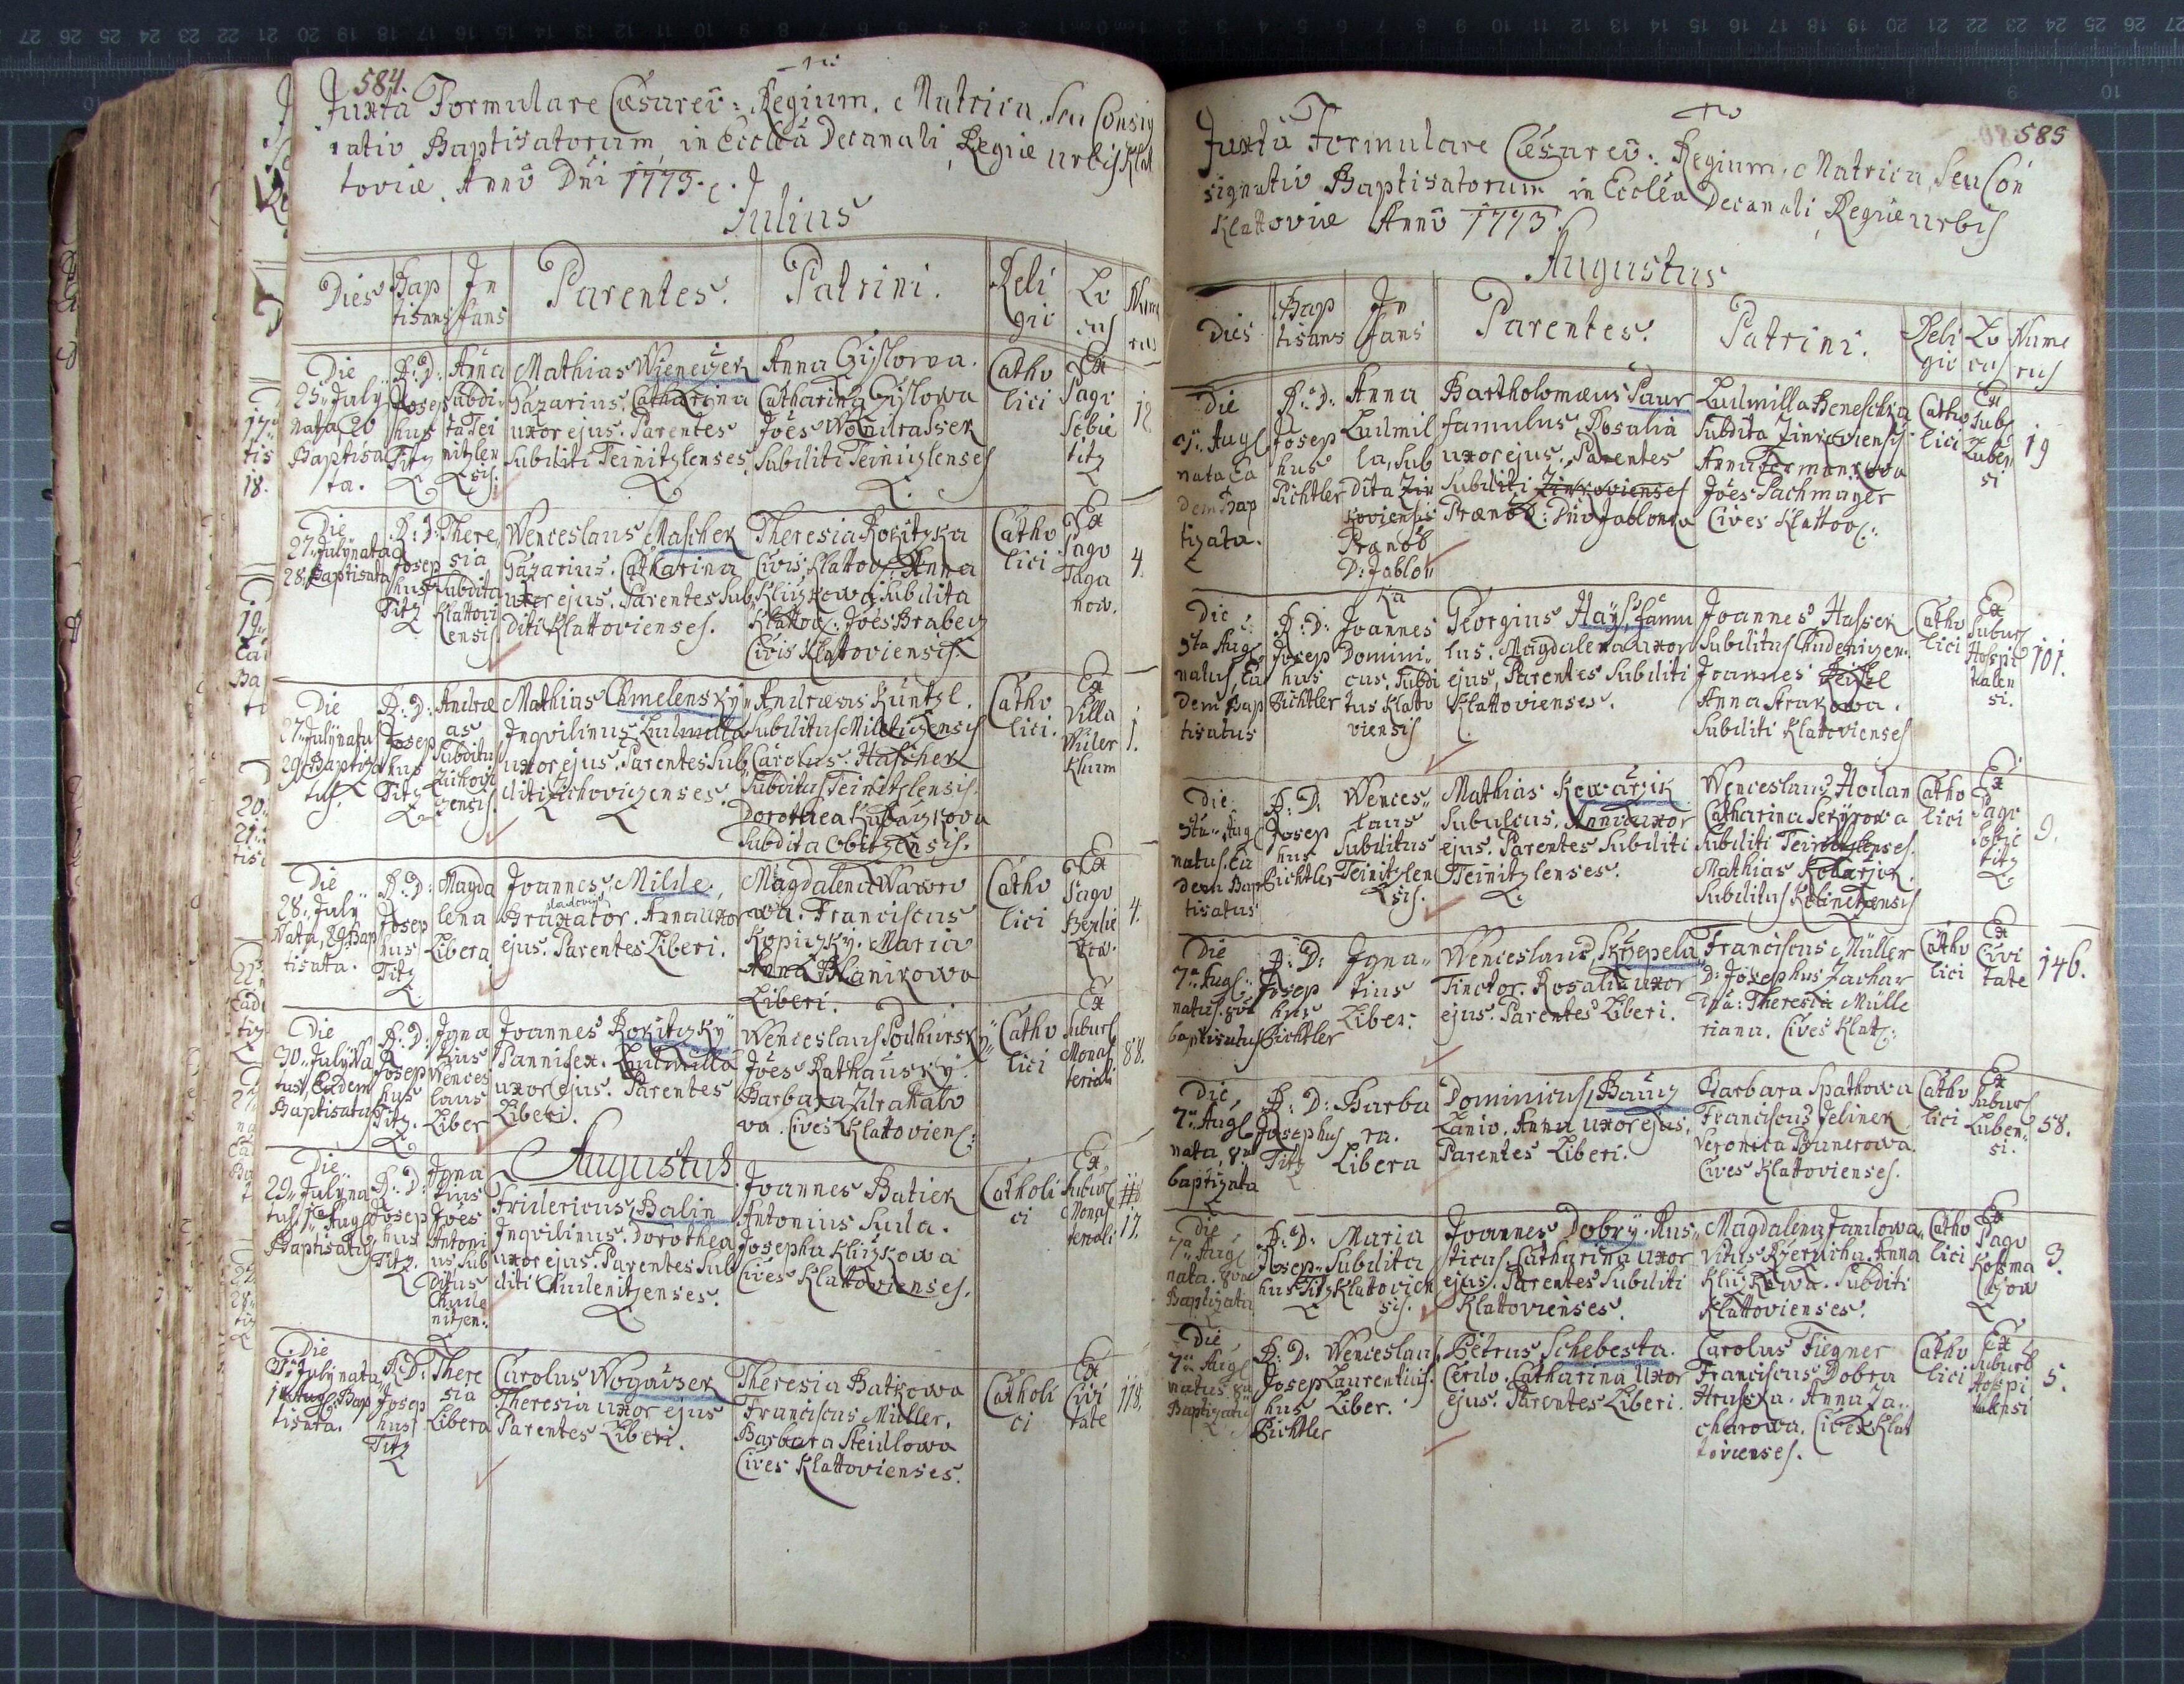 584.
Juxta Formulare Cæsareo: Regium, Matrica, Seu Consig
natio Baptisatorum, in Eccleâ Decanali, Regiæ urbis Klat
toviæ, Annô Dñi 1773.
Julius
Dies
Bap
tisans
In
fans
Parentes.
Patrini.
Reli
gio
Lo
cus
Nume
rus
Die
25. July
nata, 26
Baptisa
ta.
R: D:
Josep
hus
Titz
Anna
Subdi
ta Tei
nitzlen
sis.
Mathias Wieneczek
Gazarius. Catharina
uxor ejus. Parentes
Subditi Teinitzlenses.
Anna Gislowa.
Catharina Gislowa
Joes Woudrassek
Subditi Teinitzlenses
Catho
lici
Ex
Pago
Sobie
titz
12
Die
27. July nata
28. Baptisata
R: D:
Josep
hus
Titz
There
sia
Subdita
Klattovi
ensis.
Wenceslaus Maschek
Gazarius. Catharina
uxor ejus. Parentes Sub
diti Klattovienses.
Theresia Rokitzka
Civis Klattov: Anna
Kliczkowa Subdita
Klattov: Joes Brabecz
Civis Klattoviensis.
Catho
lici
Ex
Pago
Taga
now.
4.
Die
27. July natus
29. Baptiza
tus.
R: D:
Josep
hus
Titz
Andræ
as
Subditus
Zichovi
zensis.
Mathias Chmelensky
Inqvilinus. Ludmilla
uxor ejus. Parentes Sub
diti Zichoviczenses.
Andræas Küntzl.
Subditus Mileticzensis
Carolus Haschek
Subditus Teinitzlensis.
Dorothea Kubaczkova
Subdita Obitzensis.
Catho
lici.
Ex
Villa
Wider
Khum
1.
Die
28. July
nata, 29. Bap
tisata.
R: D:
Josep
hus
Titz
Magda
lena
Libera
Joannes Milde.
sladovny
Braxator. Anna uxor
ejus. Parentes Liberi.
Magdalena Wawro
wa. Franciscus
Kopiczky. Maria
Anna Blanikowa
Liberi.
Catho
lici
Ex
Pago
Beplie
kow.
4.
Die
30. July Na
tus, Eadem
Baptisatus
R: D:
Josep
hus
Titz.
Igna
tius
Wences
laus
Liber
Joannes Rokitzky
Pannifex. Ludmilla
uxor ejus. Parentes
Liberi.
Wenceslaus Podhursky
Joes Rathausky
Barbara Zdrahalo
va. Cives Klatovien:
Catho
lici
Ex
Suburb
Monas
teriali
88.
Augustus.
Die
29. July na
tus, 1. Aug
Baptisatus
R: D:
Josep
hus
Titz.
Igna
tius
Joes
Antoni
us Sub
ditus
Chude
nitzen:
Fridericus Balin
Inqvilinus. Dorothea
uxor ejus. Parentes Sub
diti Chudenitzenses.
Joannes Batiek
Antonius Suda.
Josepha Kliczkowa
Cives Klattovienses.
Catholi
ci
Ex
Suburb
Monas
teriali
17.
Die
31. July nata
1. Aug Bap
tisata.
R: D:
Josep
hus
Titz
There
sia
Libera
Carolus Wogaczek
Theresia uxor ejus
Parentes Liberi.
Theresia Batkowa
Franciscus Müller,
Barbara Steidlowa
Cives Klattovienses.
Catholi
ci
Ex
Civi
tate
118.
585
Juxta Formulare Cæsareo: Regium, Matrica, Seu Con
signatio Baptisatorum in Eccleâ Decanali, Regiæ urbis
Klattoviæ Annô 1773.
Augustus
Dies
Bap
tisans
In
fans
Parentes.
Patrini.
Reli
gio
Lo
cus
Nume
rus
Die
3. Aug
nata Ea
dem Bap
tizata.
R: D:
Josep
hus
Pichtler
Anna
Ludmil
la, Sub
dita Zin
koviensis
Prænob
D: Jablon
ka
Bartholomæus Paur
famulus. Rosalia
uxor ejus. Parentes
Subditi Zinkovienses
Prænob: Dno Jablonka
Ludmilla Beneschka
Subdita Zinkoviensis
Anna Formankowa
Joes Pachmayer
Cives Klattov:
Catho
lici
Ex
Sub
Luben
si
19
Die
5ta Aug
natus, Ea
dem Bap
tisatus
R: D:
Josep
hus
Pichtler
Joannes
Domini
cus, Subdi
tus Klatto
viensis
Georgius Hays, famu
lus. Magdalena uxor
ejus, Parentes Subditi
Klattovienses.
Joannes Hassek
Subditus Chudeniczen:
Joannes
Anna Strakowa.
Subditi Klatovienses
Catho
lici
Ex
Suburb
Hospi
talen
si.
101.
Die
5ta Aug
natus. Ea
dem Bap
tisatus
R: D:
Josep
hus
Pichtler
Wences
laus
Subditus
Teinitzlen
sis.
Mathias Kowarzik
Subulcus, Anna uxor
ejus. Parentes Subditi
Teinitzlenses.
Wenceslaus Hodan
Catharina Sekyrowa
Subditi Teinitzlenses.
Mathias Kowarzik.
Subditus Kolinetzensis
Catho
lici
Ex
Pago
Sobie
titz
9.
Die
7a Aug
natus. 8va
baptisatus
R: D:
Josep
hus
Pichtler
Igna
tius
Liber.
Wenceslaus Skrzepela
Tinctor. Rosalia uxor
ejus. Parentes Liberi.
Franciscus Müller
D: Josephus Zachar
Dna: Theresia Mülle
riana. Cives Klat:
Catho
lici
Ex
Civi
tate
146.
Die
7a Aug
nata, 8va
baptizata
R: D:
Josephus
Titz
Barba
ra.
Libera
Dominicus Baucz
Lanio. Anna uxor ejus.
Parentes Liberi.
Barbara Spatkowa
Franciscus Jelinek
Veronica Brunerowa.
Cives Klattovienses.
Catho
lici
Ex
Suburb
Luben
si.
58.
Die
7a Aug
nata. 8va
Baptizata
R: D:
Josep
hus Titz
Maria
Subdita
Klattovien
sis.
Joannes Dobry. Rus
ticus, Catharina uxor
ejus. Parentes Subditi
Klattovienses.
Magdalena Jandowa
Vitus Rzernicha. Anna
Kliczkowa. Subditi
Klattovienses.
Catho
lici
Ex
Pago
Kossma
czow
3.
Die
7a Aug
natus. 8va
Baptizatus
R: D:
Josep
hus
Pichtler
Wenceslaus
Laurentius.
Liber.
Petrus Schebesta.
Cerdo. Catharina Uxor
ejus. Parentes Liberi.
Carolus Fiegner
Franciscus Dobra
Hruska. Anna Za
charowa. Cives Klat
tovienses.
Catho
lici
Ex
Suburb
Hospi
talensi
5.